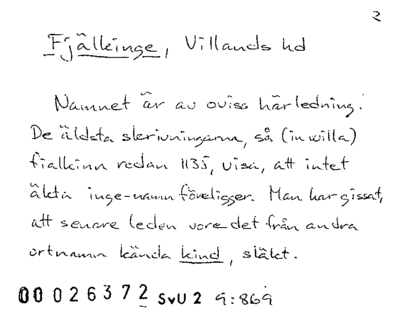 2
Fjälkinge, Villands hd
Namnet är av oviss härledning.
De äldsta skrivningarna, så (in willa)
fialkinn redan 1135, visa, att intet
äkta inge-namn föreligger. Man har gissat,
att senare leden vore det från andra
ortnamn kända kind, släkt.
00026372 SvU2 9:869